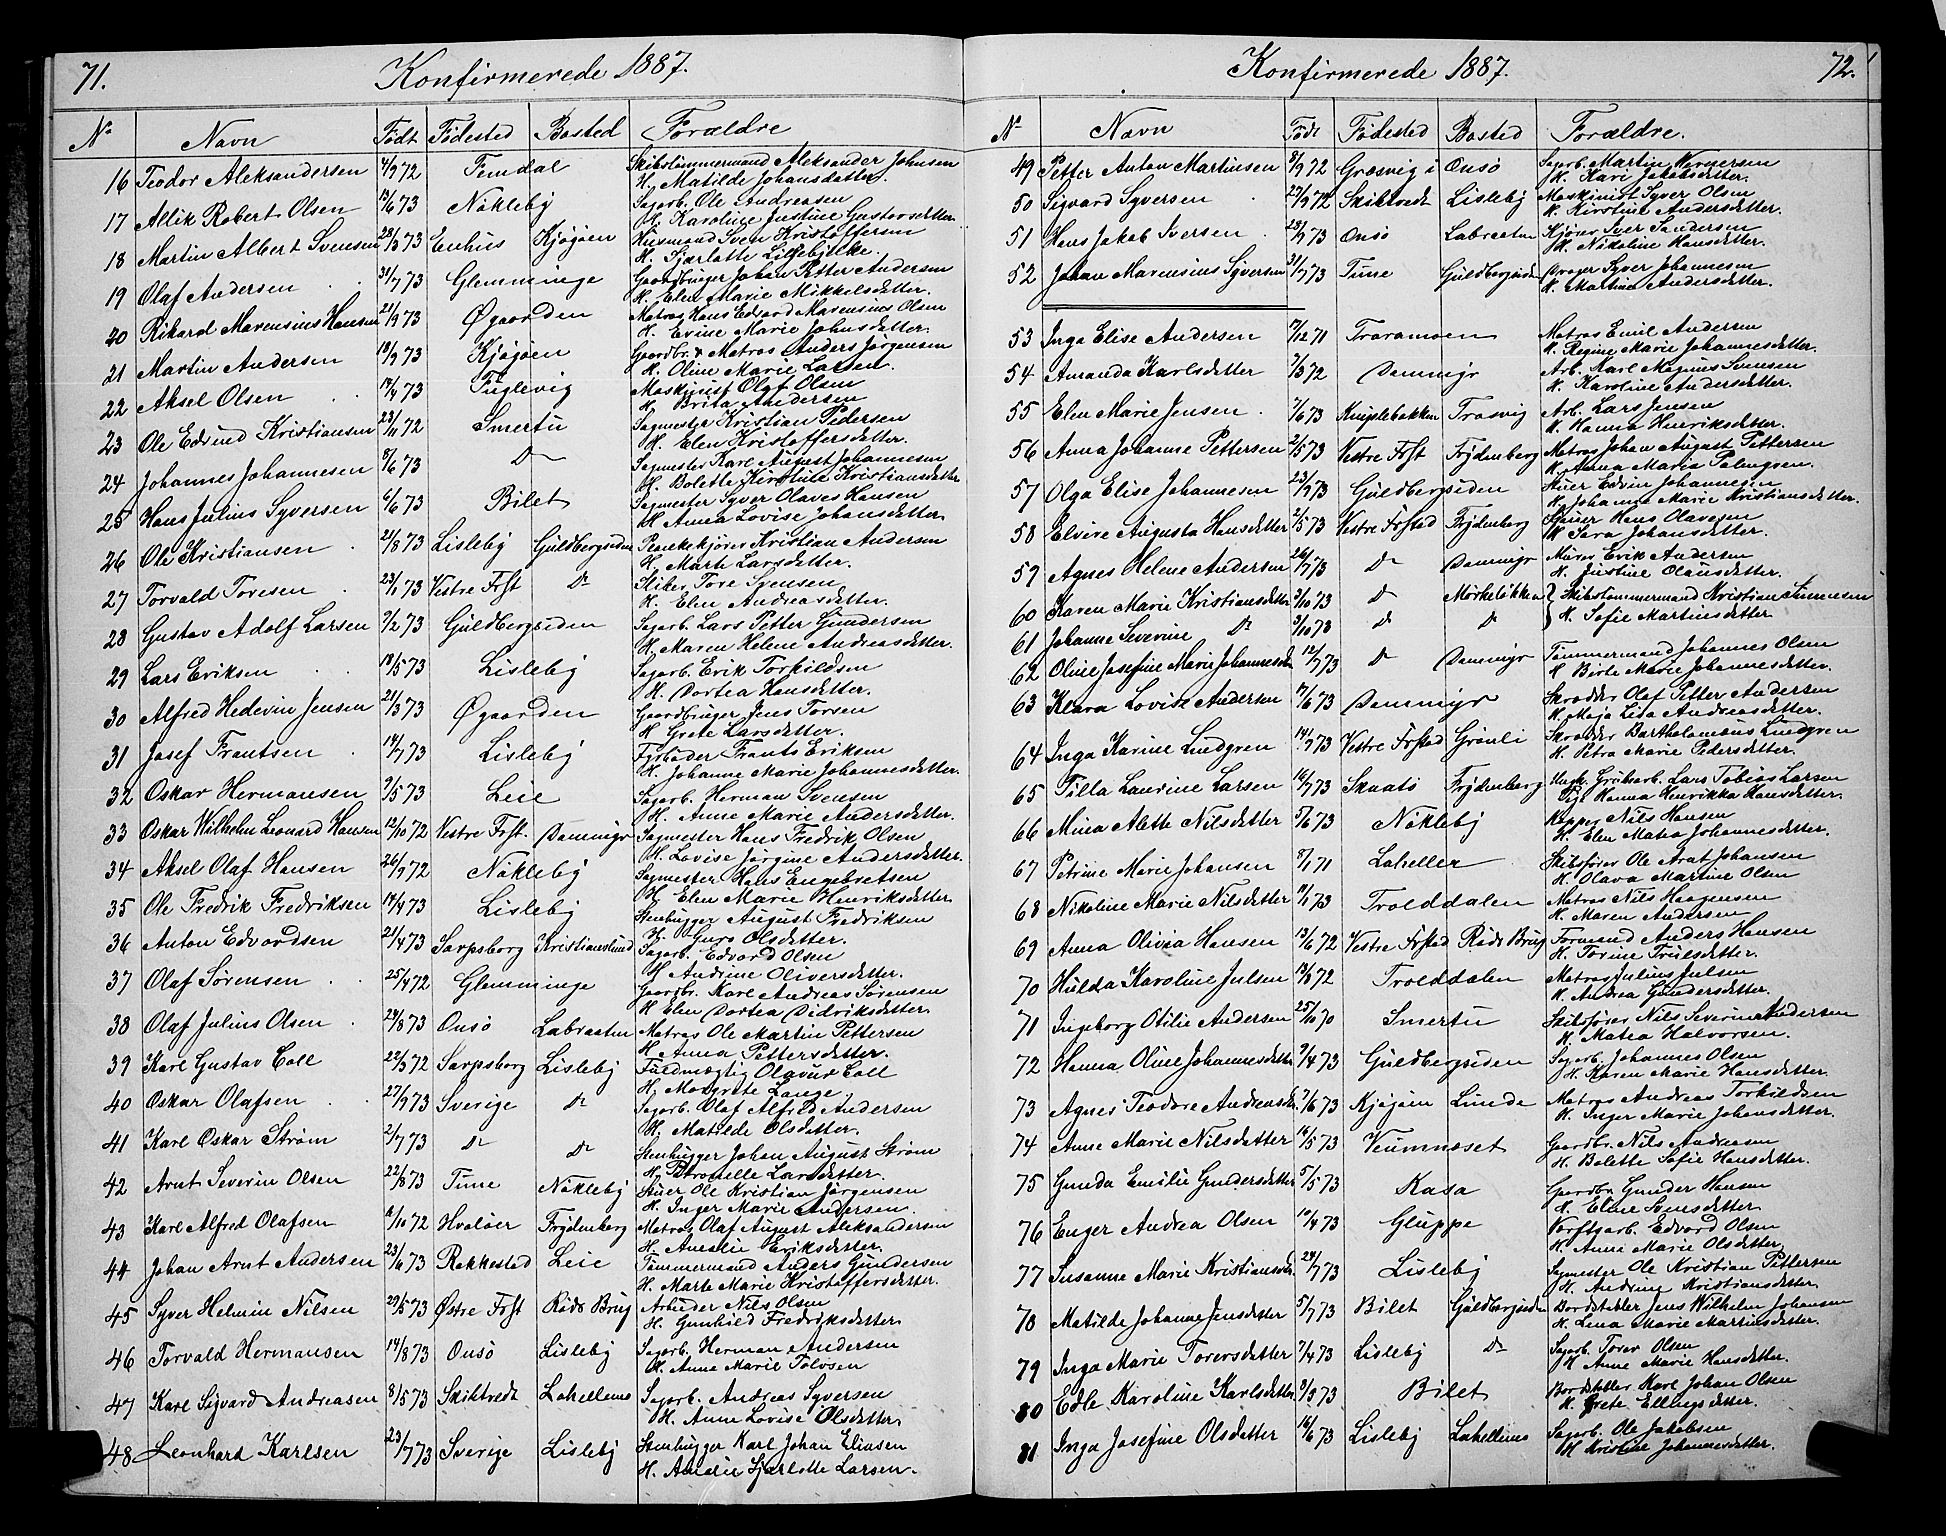 71.
Konfirmerede 1887.
No Navn Født Fødested Bosted Forældre
16 Teodor Aleksandersen 4/9 72 Temdal Skibstømmermand Aleksander Johnsen
H. Matilde Johansdatter.
17 Allik Robert Olsen 13/6 73 Nökleby Sagarb. Ole Andreasen
H. Karoline Justine Gustavsdatter
18 Martin Albert Svensen 23/3 73 Enhus Kjøgøen Husmand Sven Kristoffersen
H. Sjarlotte Lillebjerke.
19 Olaf Andersen 31/7 73 Glemminge Gaardbruger Johan Petter Andersen
H. Elen Marie Mikkelsdatter.
20 Rikard Marensius Hansen 21/9 73 Øgaarden Matros Hans Edvard Marensius Olsen
H. Evine Marie Johnsdatter.
21 Martin Andersen 18/9 73 Kjøgøen Gaardbr. & Matros Anders Jørgensen
H. Oline Marie Larsen.
22 Aksel Olsen 14/4 73 Fuglevig Maskinist Olaf Olsen
H. Brita Andersen
23 Ole Edvind Kristiansen 23/11 72 Smertu Sagmester Kristian Pedersen
H. Elen Kristoffersdatter.
24 Johannes Johannesen 8/6 73 Do Sagmester Karl August Johannesen
H. Bolette Kirstine Kristiansdatter
25 Hans Julius Syversen 6/6 73 Bilet Sagmester Syver Olaves Hansen
H. Anna Lovise Johansdatter
26 Ole Kristiansen 21/8 73 Lisleby Guldbergsiden Kristian Andersen
H. Marte Larsdatter.
27 Torvald Toresen 23/1 73 Vestre Frst Do Tore Svensen
H. Elen Andreasdatter.
28 Gustav Adolf Larsen 9/2 73 Guldbergsiden Sagarb. Lars Petter Gundersen
H. Maren Helene Andreasdatter.
29 Lars Eriksen 18/5 73 Lisleby Sagarb. Erik Torkildsen
H. Dortea Hansdatter.
30 Alfred Hedevin Jensen 21/3 73 Øgaarden Gaardbruger Jens Torsen
H. Grete Larsdatter.
31 Josef Frantsen 14/7 73 Lisleby Fyrbøder Frants Eriksen
H. Johanne Marie Johannesdatter.
32 Oskar Hermansen 9/5 73 Leie Sagarb. Herman Svensen
H. Anne Marie Andersdatter.
33 Oskar Wilhelm Leonard Hansen 12/10 72 Vestre Frst. Dammyr Sagmester Hans Fredrik Olsen
H. Lovise Jørgine Andersdatter.
34 Aksel Olaf Hansen 26/9 72 Nökleby Sagmester Hans Engebretsen
H. Elen Marie Henriksdatter
35 Ole Fredrik Fredriksen 14/4 73 Lisleby Stenhugger August Fredriksen
H. Guro Olsdatter.
36 Anton Edvardsen 21/4 73 Sarpsborg Kristianslund Sagarb. Edvard Olsen
H. Andrine Oliversdatter.
37 Olaf Sørensen 25/4 72 Glemminge Gaardbr. Karl Andreas Sørensen
H. Elen Dortea Didriksdatter
38 Olaf Julius Olsen 24/8 73 Onsö Labraaten Matros Ole Martin Pettersen
H. Anna Pettersdatter.
39 Karl Gustav Coll 22/3 72 Sarpsborg Lisleby Olavur Coll
H. Margrete Lange
40 Oskar Olafsen 27/9 73 Sverige Do Sagarb. Olaf Alfred Andersen
H. Matilde Olsdatter.
41 Karl Oskar Strøm 2/7 73 Do Do Stenhugger Johan August Strøm
H. Petronelle Larsdatter.
42 Arnt Severin Olsen 22/8 73 Tune Nökleby Stuer Ole Kristian Jørgensen
H. Inger Marie Andersen.
43 Karl Alfred Olafsen 6/10 72 Hvaløer Frydenberg Matros Olaf August Aleksandersen
H. Amalie Eriksdatter.
44 Johan Arnt Andersen 23/6 73 Rakkestad Leie Tømmermand Anders Gundersen
H. Marte Marie Kristoffersdatter.
45 Syver Helmin Nilsen 29/5 73 Østre Frst Røds Brug Arbeider Nils Olsen
H. Gunhild Fredriksdatter.
46 Torvald Hermansen 14/8 73 Onsö Lisleby Sagarb. Herman Andersen
H. Anna Marie Tolvsen
47 Karl Sigvard Andreasen 8/5 73 Skibtvedt Lahellene Sagarb. Andreas Syversen
H. Anne Lovise Olsdatter.
48 Leonhard Karlsen 23/7 73 Sverige Lisleby Stenhugger Karl Johan Eliasen
H. Amalie Sjarlotte Larsen.
Konfirmerede 1887.
72.
No Navn Født Fødested Bosted Forældre.
49 Petter Anton Martinsen 8/9 72 Græsvig i Onsö Sagarb. Martin
H. Kari Jakobsdatter.
50 Sigvard Syversen 27/9 72 Skibtvedt Lisleby Maskinist Syver Olsen
H. Kirstine Andersdatter.
51 Hans Jakob Iversen 23/9 73 Onsö Labraaten Kjører Iver Sandersen
H. Nikoline Hansdatter.
52 Johan Marensius Syversen 31/7 73 Tune Guldbergsiden Syver Johannesen
H. Martina Andersdatter.
53 Inga Elise Andersen 17/12 71 Traramoen Matros Emil Andersen
H. Regine Marie Johannesdatter.
54 Amanda Karlsdatter 7/3 72 Dammyr Arb. Karl Magnus Svensen
H. Karoline Andersdatter.
55 Elen Marie Jensen 7/6 73 Kniplebakken Trosvig Arb. Lars Jensen
H. Hanna Henriksdatter.
56 Anna Johanne Pettersen 2/5 73 Vestre Frst Frydenberg Matros Johan August Pettersen
H. Anna Maria Palmgren.
57 Olga Elise Johannesen 23/9 73 Guldbergsiden Stuer Edvin Johannesen
H. Johanna Marie Kristiansdatter.
58 Elvire Augusta Hansdatter 2/5 73 Vestre Frstad Frydenberg Stuer Hans Olavesen
H. Sara Johansdatter.
59 Agnes Helene Andersen 26/7 73 Do Dammyr Murer Erik Andersen
H. Justine Olausdatter.
60 Karen Marie Kristiansdatter 3/10 73 Do Mørkeløkka } Skibstømmermand Kristian
61 Johanne Severine Do 3/10 73 Do Do H. Sofie Martinsdatter
62 Oline Josefine Marie Johannesdr 12/7 73 Do Dammyr Tømmermand Johannes Olsen
H. Birte Marie Johannesdatter.
63 Klara Lovise Andersen 17/6 73 Dammyr Skrædder Olaf Petter Andersen
H. Maja Lisa Andreasdatter.
64 Inga Karine Lindgren 14/9 73 Vestre Frstad Grønli Skrædder Bartholomæus Lindgren
H. Petra Marie Pedersdatter.
65 Tilla Laurine Larsen 16/7 73 Skaatö Frydenberg Ungk. Grubearb. Lars Tobias Larsen
Pige Hanna Henrikka Hansdatter.
66 Mina Alette Nilsdatter 5/6 73 Nökleby Nils Hansen
H. Elen Matea Johannesdatter.
67 Petrine Marie Johansen 8/1 71 Laheller Skibsfører Ole Arnt Johansen
H. Olava Martine Olsen
68 Nikoline Marie Nilsdatter 11/1 73 Trolddalen Matros Nils Haagensen
H. Maren Andersen
69 Anna Olivia Hansen 13/6 72 Vestre Frstad Røds Brug Formand Anders Hansen
H. Torine Truelsdatter.
70 Hulda Karoline Julsen 13/8 72 Trolddalen Matros Julius Julsen
H. Andrea Gundersdatter.
71 Ingeborg Otilie Andersen 25/10 70 Smertu Skibsfører Nils Severin Andersen
H. Matea Halvorsen.
72 Hanna Oline Johannesdatter 9/4 73 Guldbergsiden Sagarb. Johannes Olsen
H. Karen Marie Hansdatter.
73 Agnes Teodore Andreasdr. 7/6 73 Kjøgøen Lunde Matros Andreas Torkildsen
H. Inger Marie Johansdatter.
74 Anne Marie Nilsdatter 16/5 73 Veumnæset Gaardbr. Nils Andersen
H. Bolette Sofie Hansdatter.
75 Gunda Emilie Gundersdatter 5/5 73 Kasa Gaardbr. Gunder Hansen
H. Eline Svensdatter.
76 Enger Andrea Olsen 10/4 73 Gluppe Værftsarb. Edvard Olsen
H. Anne Marie Olsdatter
77 Susanne Marie Kristiansdr. 24/7 73 Lisleby Sagmester Ole Kristian Pettersen
H. Andrine Kristiansdatter.
78 Matilde Johanne Jensdatter 5/7 73 Bilet Guldbergsiden Bordstabler Jens Wilhelm Johansen
H. Lena Marie Martinsdatter.
79 Inga Marie Torersdatter 7/4 73 Lisleby Do Sagarb. Torer Olsen
H. Anne Marie Hansdatter.
80 Edle Karoline Karlsdatter 3/8 73 Bilet Bordstabler Karl Johan Olsen
H. Grete Ellingsdatter.
81 Inga Josefine Olsdatter 16/6 73 Lisleby Lahellene Sagarb. Ole Jakobsen
H. Kristine Johannesdatter.